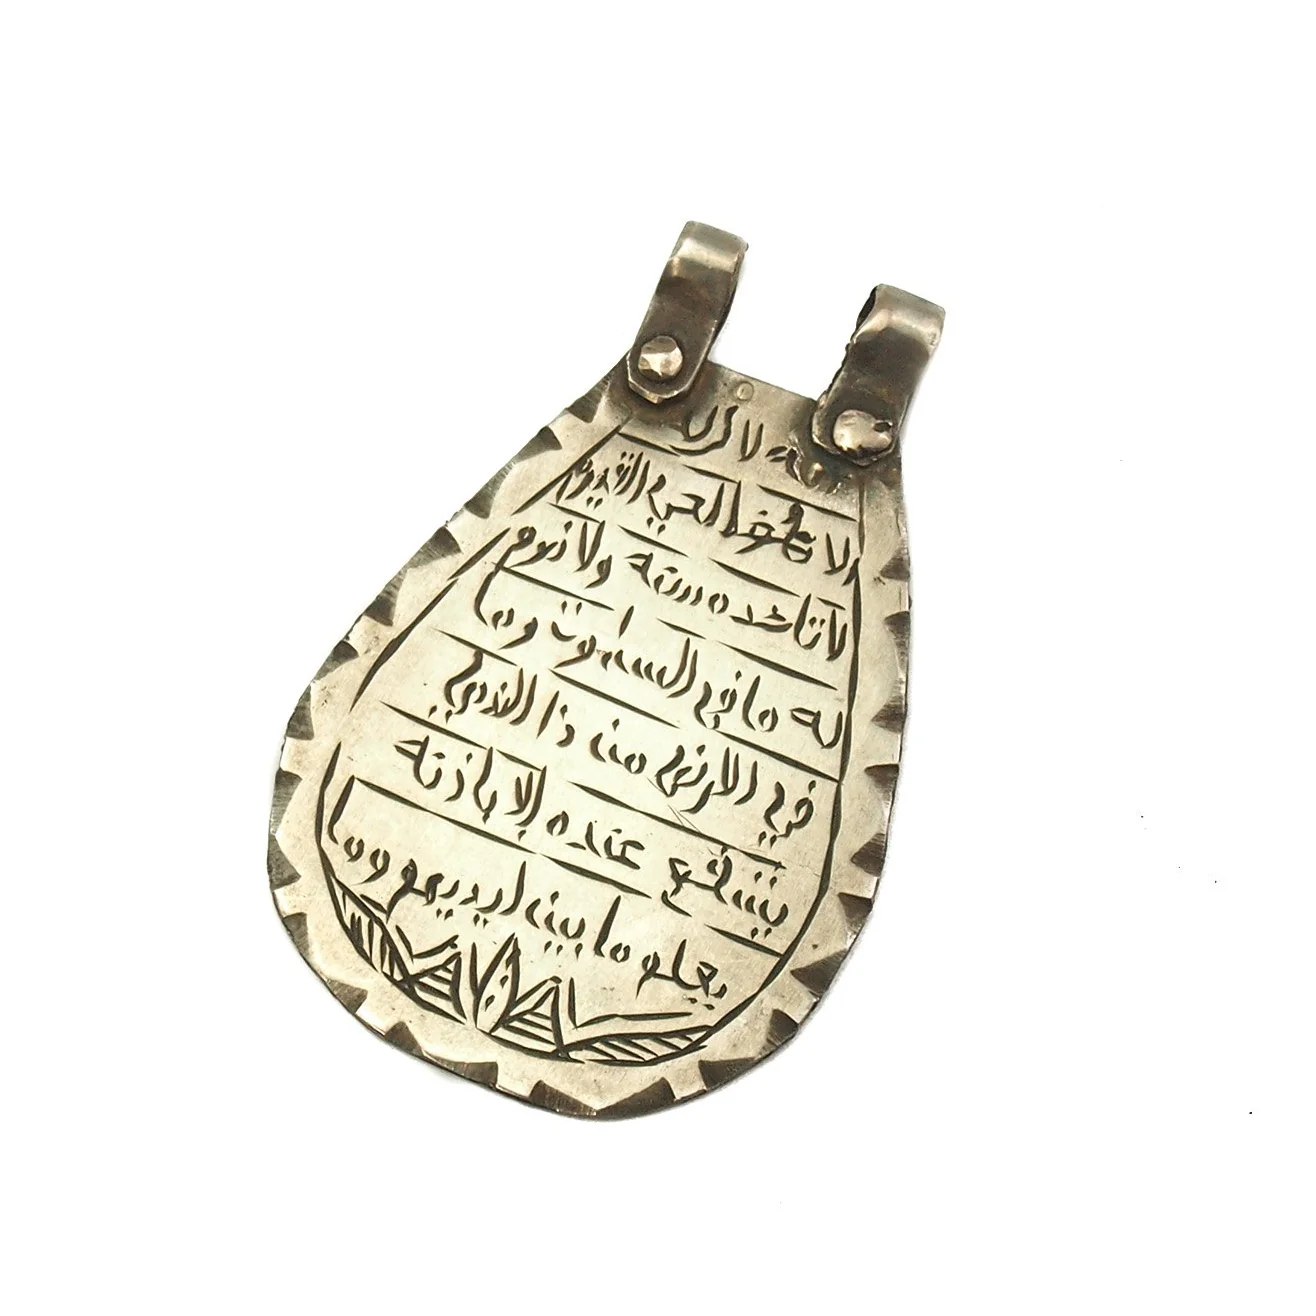 لا اله
الا هو الحي القيوم
لا تاخده سنة ولا نوم
له ما في السماوت وما
في الارض من ذا الذي
يشفع عنده الا باذنه
يعلم ما بين ايديهم وما